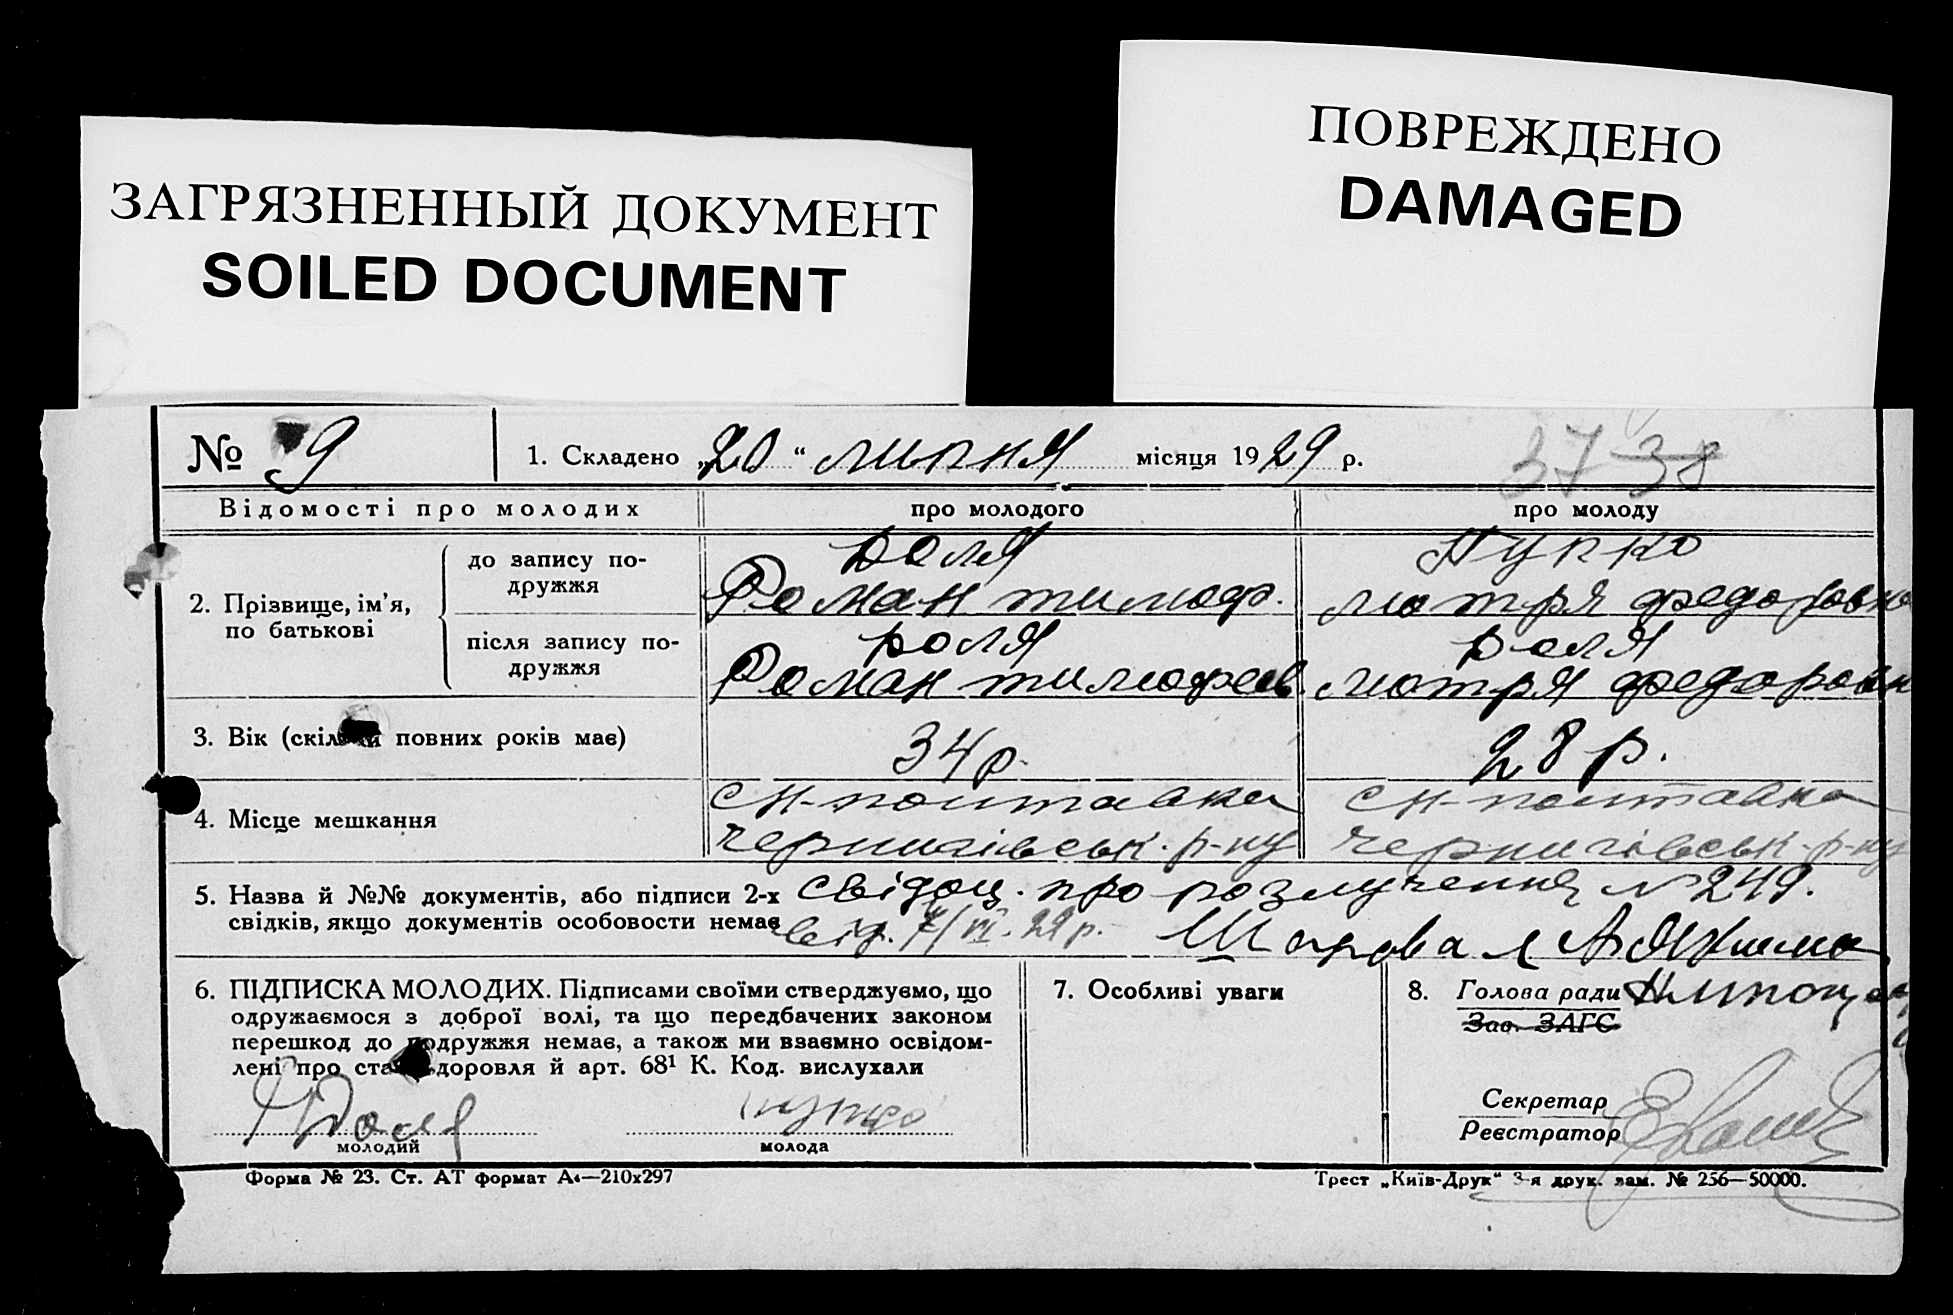 ЗАГРЯЗНЕННЫЙ ДОКУМЕНТ
SOILED DOCUMENT
ПОВРЕЖДЕНО
DAMAGED
№ 9
1. Складено „20“ липня місяця 1929 р.
37 38
Відомості про молодих
про молодого
про молоду
2. Прізвище, ім’я,
по батькові
до запису по-
дружжя
Доля
Роман тимоф.
Пупко
мотря федоровна
після запису по-
дружжя
Доля
Роман тимофеев.
Доля
мотря федоровн
3. Вік (скіл и повних років має)
34 р.
28 р.
4. Місце мешкання
с Н-полтавка
чернигівськ. р-ну
с Н-полтавка
чернигівськ. р-ну
5. Назва й №№ документів, або підписи 2-х
свідків, якщо документів особовости немає
свідоц. про розлучення № 249.
від. VI. 29 р.
6. ПІДПИСКА МОЛОДИХ. Підписами своїми стверджуємо, що
одружаємося з доброї волі, та що передбачених законом
перешкод до подружжя немає, а також ми взаємно освідом-
лені про ста доровля й арт. 68¹ К. Код. вислухали
Доля
молодий
пупко
молода
7. Особливі уваги
8. Голова ради
Зав. ЗАГС
Секретар
Реєстратор
Форма № 23. Ст. АТ формат А₄—210х297
Трест „Київ-Друк“ 3-я друк. зам. № 256—50000.